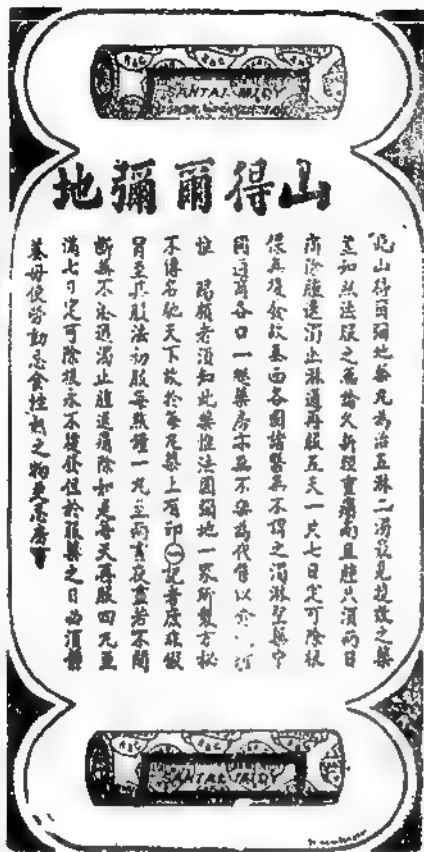 SANTAL MIDY
山得爾彌地
此山得爾彌地藥丸為治五淋二濁最見捷效之藥
苟知照法服之無論久新輕重痛而且腫只須兩日
痛除腫退濁止淋通再服五天一共七日定可除根
保無復發故泰西各國諸醫無不謂之濁淋聖藥中
國通商各口一總藥房亦無不安為代售以
惟 賜顧者須知此藥惟法國彌地一家所製方秘
不傳名馳天下故於每丸藥上有印 記者庶非假
冒至其服法初服每點鐘一丸至兩書夜盡若不間
斷無不淋通濁止腫退痛除如是每天再服四丸至
滿七日定可除根永不復發但於服藥之日必須靜
養毋使勞動忌食性熱之物更忌房事
SANTAL MIDY